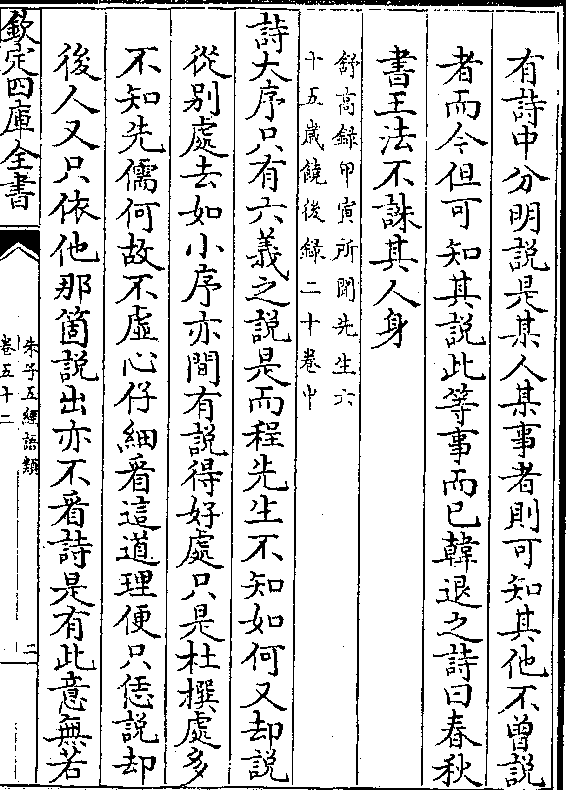 有詩中分明說是某人某事者則可知其他不曾說
者而今但可知其說此等事而已韓退之詩曰春秋
書王法不誅其人身
舒高錄甲寅所聞先生六
十五歲饒後錄二十卷中
詩大序只有六義之說是而程先生不知如何又却說
從別處去如小序亦間有說得好處只是杜撰處多
不知先儒何故不虛心仔細看這道理便只恁說却
後人又只依他那箇說出亦不看詩是有此意無若
欽定四庫全書
朱子五經語類
卷五十二
二